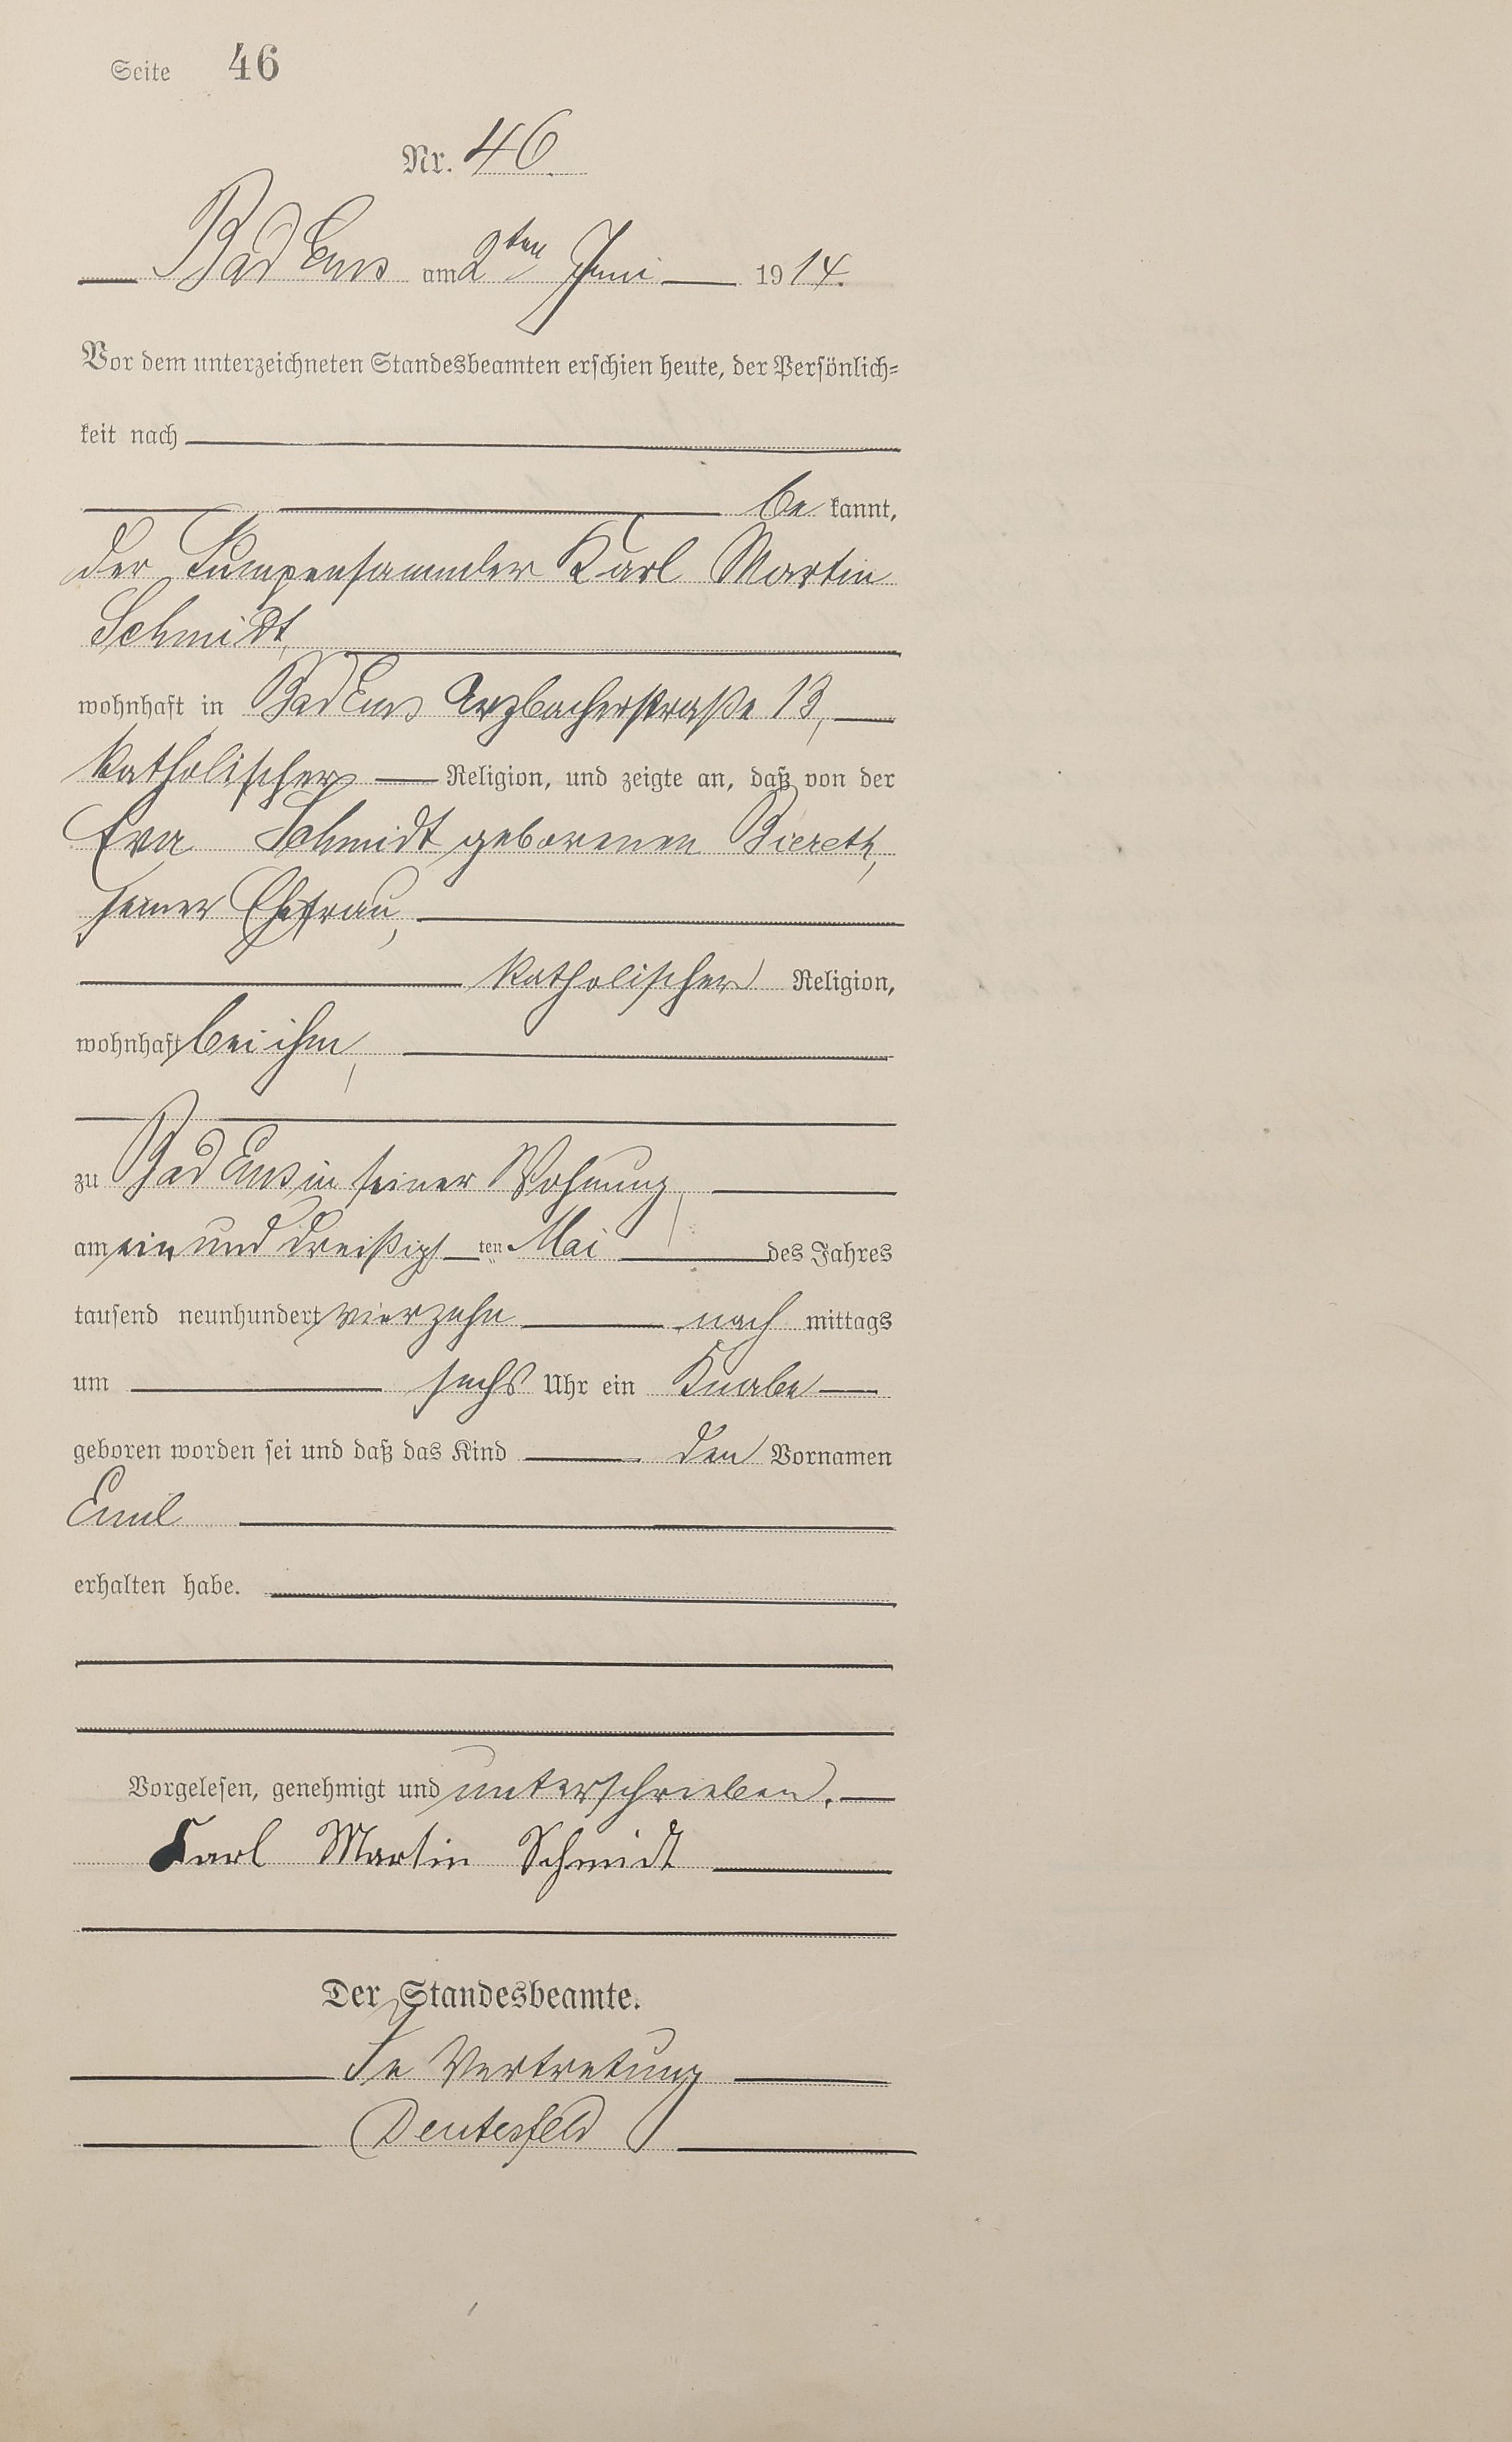 Seite 46
Nr. 46.
Bad Ems am 2ten Juni 1914.
Vor dem unterzeichneten Standesbeamten erschien heute, der Persönlich-
keit nach
be kannt,
der Lumpensammler Karl Martin
Schmidt,
wohnhaft in Bad Ems Arzbacherstraße 13,
katholischer Religion, und zeigte an, daß von der
Eva Schmidt geborenen Biereth,
seiner Ehefrau,
katholischer Religion,
wohnhaft bei ihm,
zu Bad Ems in seiner Wohnung,
am ein und dreißigs ten Mai des Jahres
tausend neunhundert vierzehn nach mittags
um sechs Uhr ein Knabe
geboren worden sei und daß das Kind den Vornamen
Emil
erhalten habe.
Vorgelesen, genehmigt und unterschrieben.
Karl Martin Schmidt
Der Standesbeamte.
In Vertretung
Deutesfeld